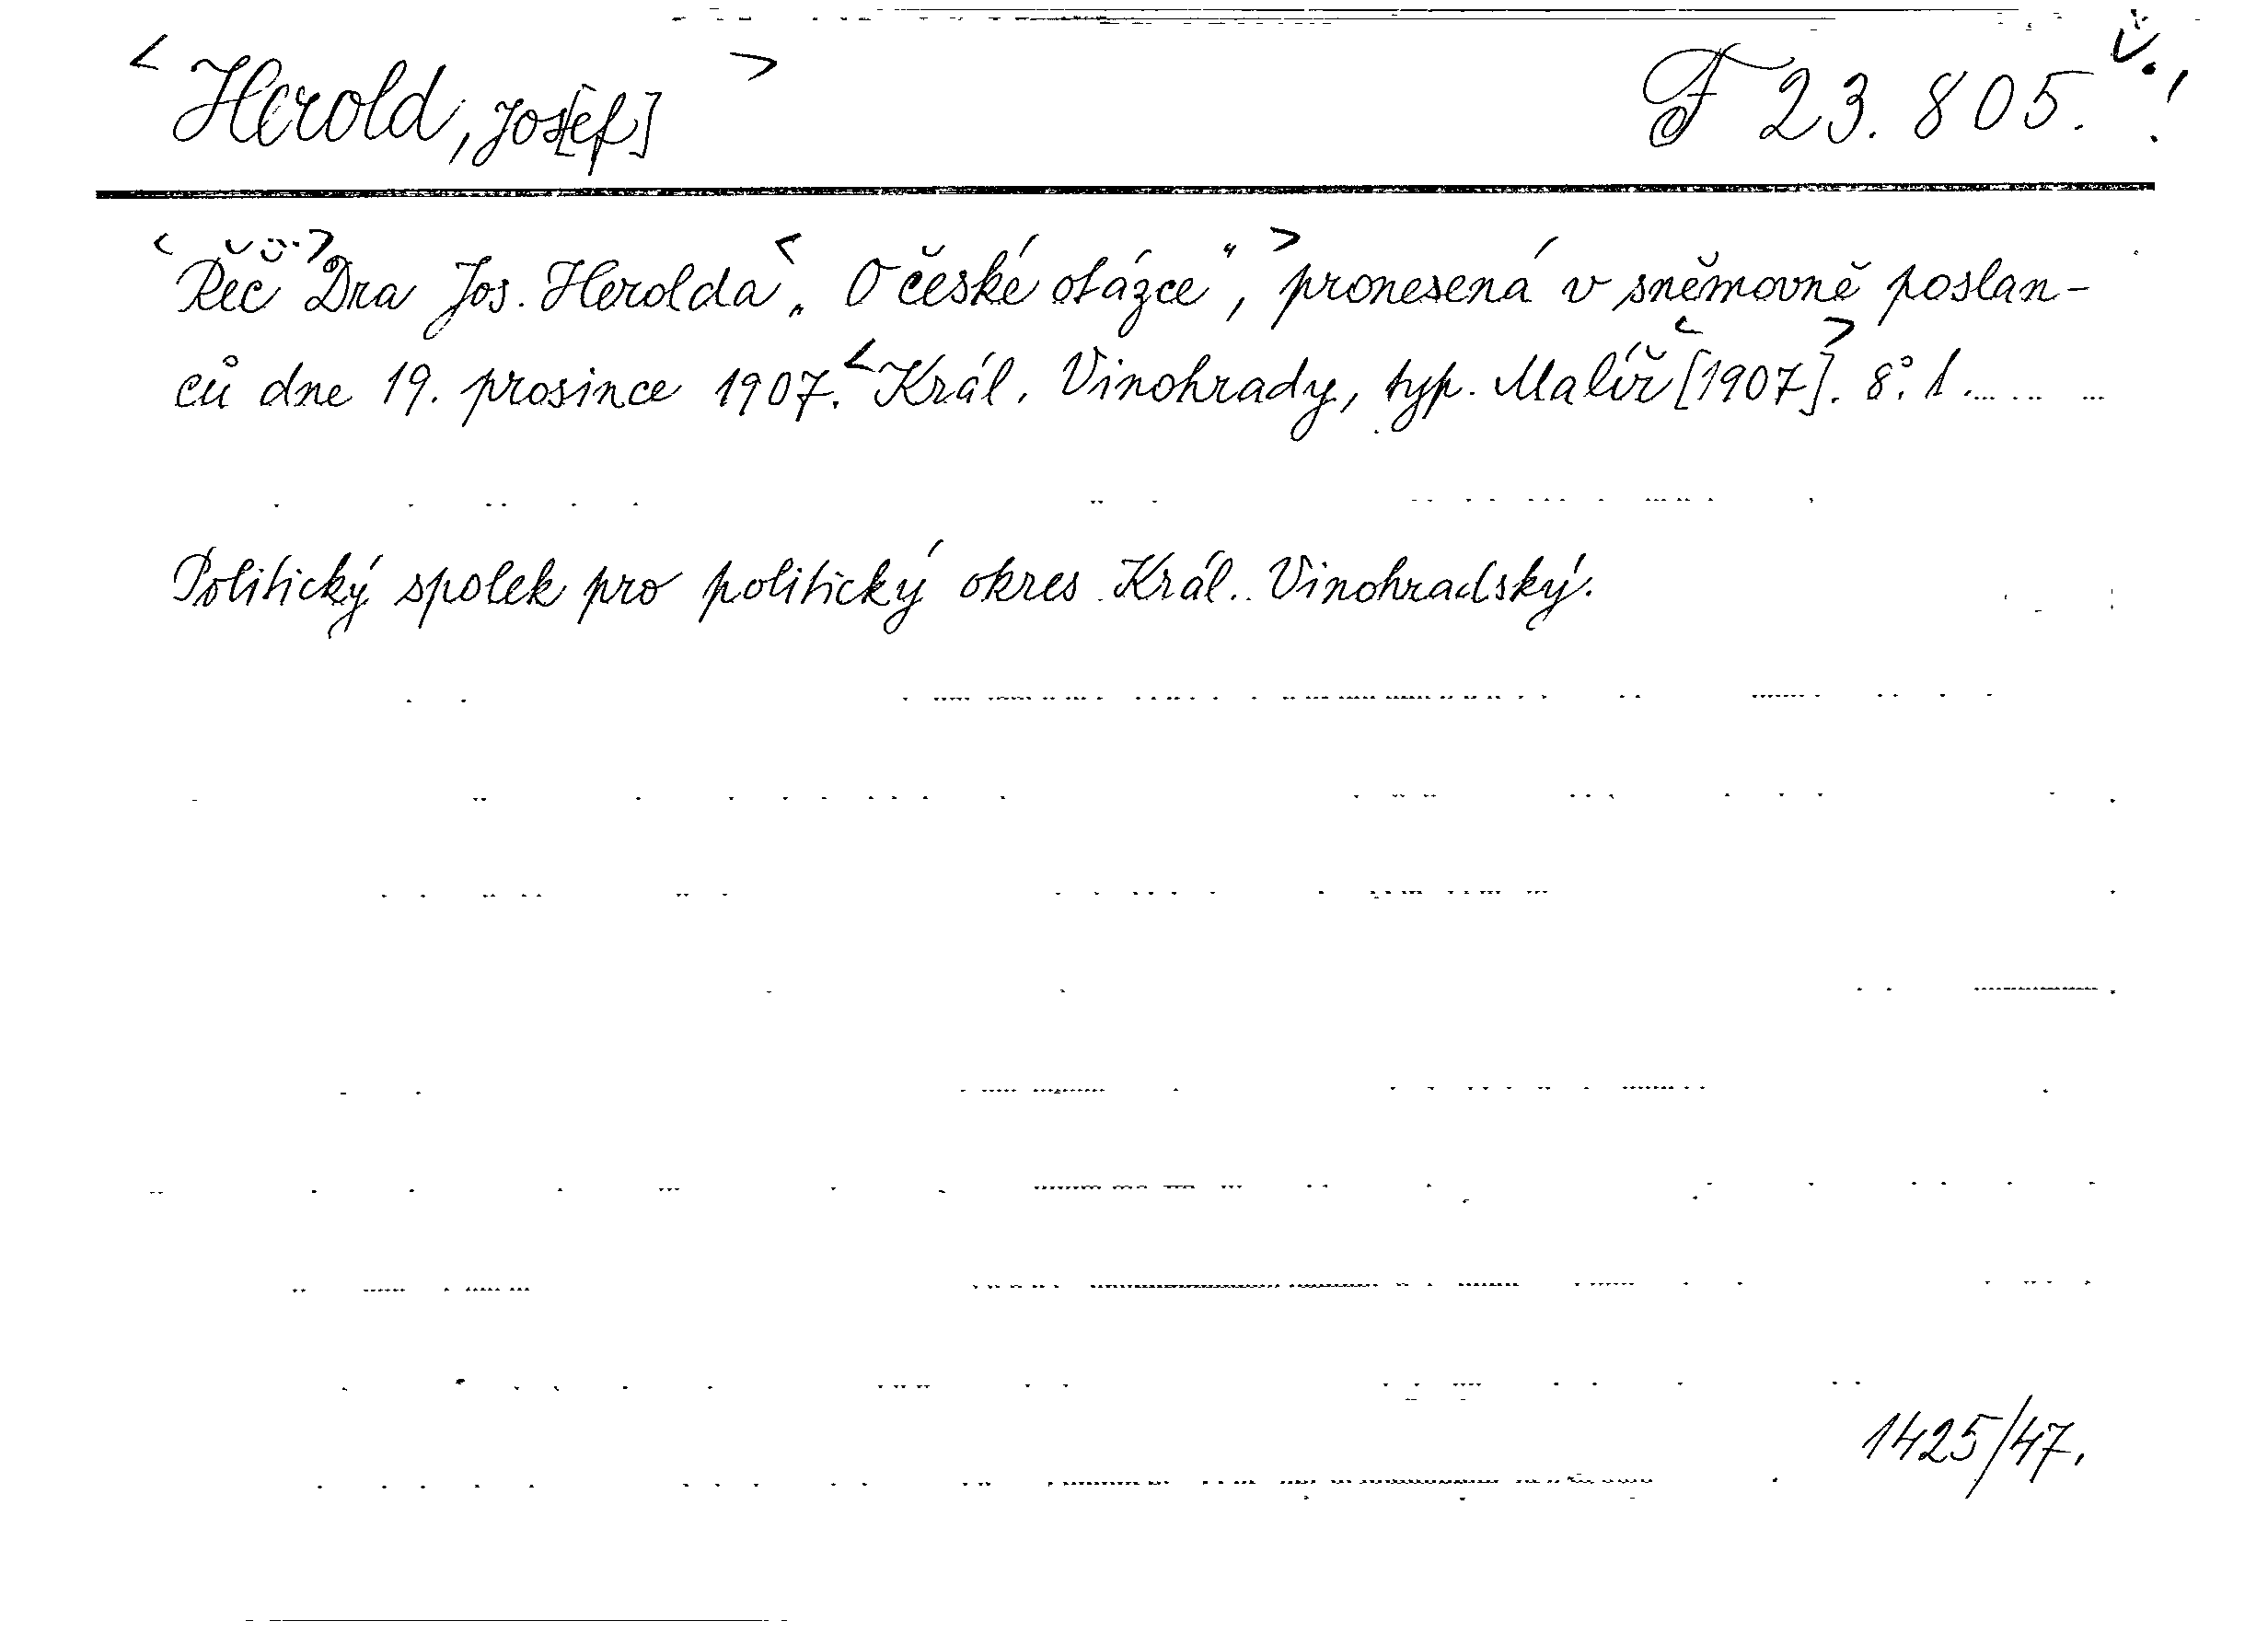 <Herold, Jos[ef]> F 23.805. Č.!
<Řeč> Dra Jos. Herolda <„O české otázce“,> pronesená v sněmovně poslan-
ců dne 19. prosince 1907. <Král. Vinohrady, typ. Malíř [1907]>. 8°. 1.
Politický spolek pro politický okres Král. Vinohradský.
1425/47.